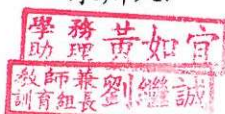 學務
助理 黃如宜
教師兼
訓育組長 劉繼誠